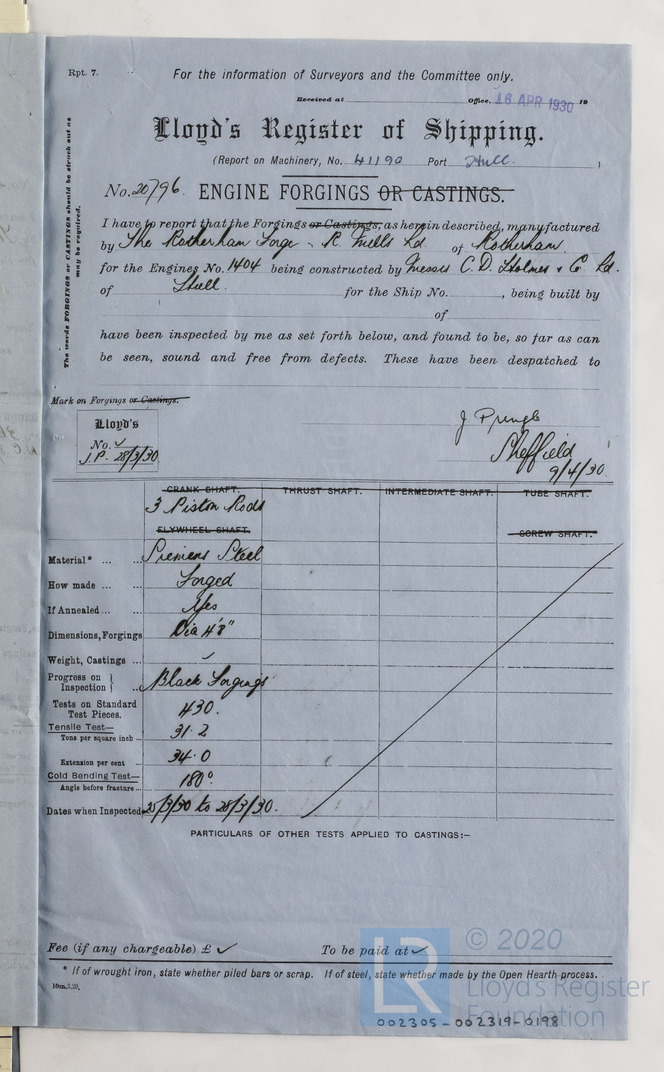 Rpt. 7.
For the information of Surveyors and the Committee only.
Received at Office, 16 APR 1930 19
Lloyd's Register of Shipping.
(Report on Machinery, No. 41190 Port Hull.)
No. 20796. ENGINE FORGINGS OR CASTINGS.
The words FORGINGS or CASTINGS should be struck out as
may be required.
I have to report that the Forgings or Castings, as herein described, manufactured
by The Rotherham Forge & R. Mills Ld. of Rotherham
for the Engines No. 1404 being constructed by Messrs C. D. Holmes & Co Ld.
of Hull. for the Ship No. , being built by
of
have been inspected by me as set forth below, and found to be, so far as can
be seen, sound and free from defects. These have been despatched to
Mark on Forgings or Castings.
Lloyd's
No. ✓
J.P. 28/3/30.
J Pringle
Sheffield
9/4/30.
CRANK SHAFT. THRUST SHAFT. INTERMEDIATE SHAFT. TUBE SHAFT.
3 Piston Rods
FLYWHEEL SHAFT. SCREW SHAFT.
Material* ... ... Siemens Steel
How made ... ... Forged
If Annealed ... ... Yes
Dimensions, Forgings Dia 4⅝"
Weight, Castings ... ✓
Progress on Inspection ... Black Forgings
Tests on Standard
Test Pieces. 430.
Tensile Test—
Tons per square inch ... 31.2
Extension per cent ... 34.0
Cold Bending Test—
Angle before fracture ... 180°.
Dates when Inspected 25/3/30 to 28/3/30.
PARTICULARS OF OTHER TESTS APPLIED TO CASTINGS:—
Fee (if any chargeable) £ ✓ To be paid at ✓
* If of wrought iron, state whether piled bars or scrap. If of steel, state whether made by the Open Hearth process.
10m,3,29.
LR
© 2020
Lloyd's Register
Foundation
002305-002319-0198